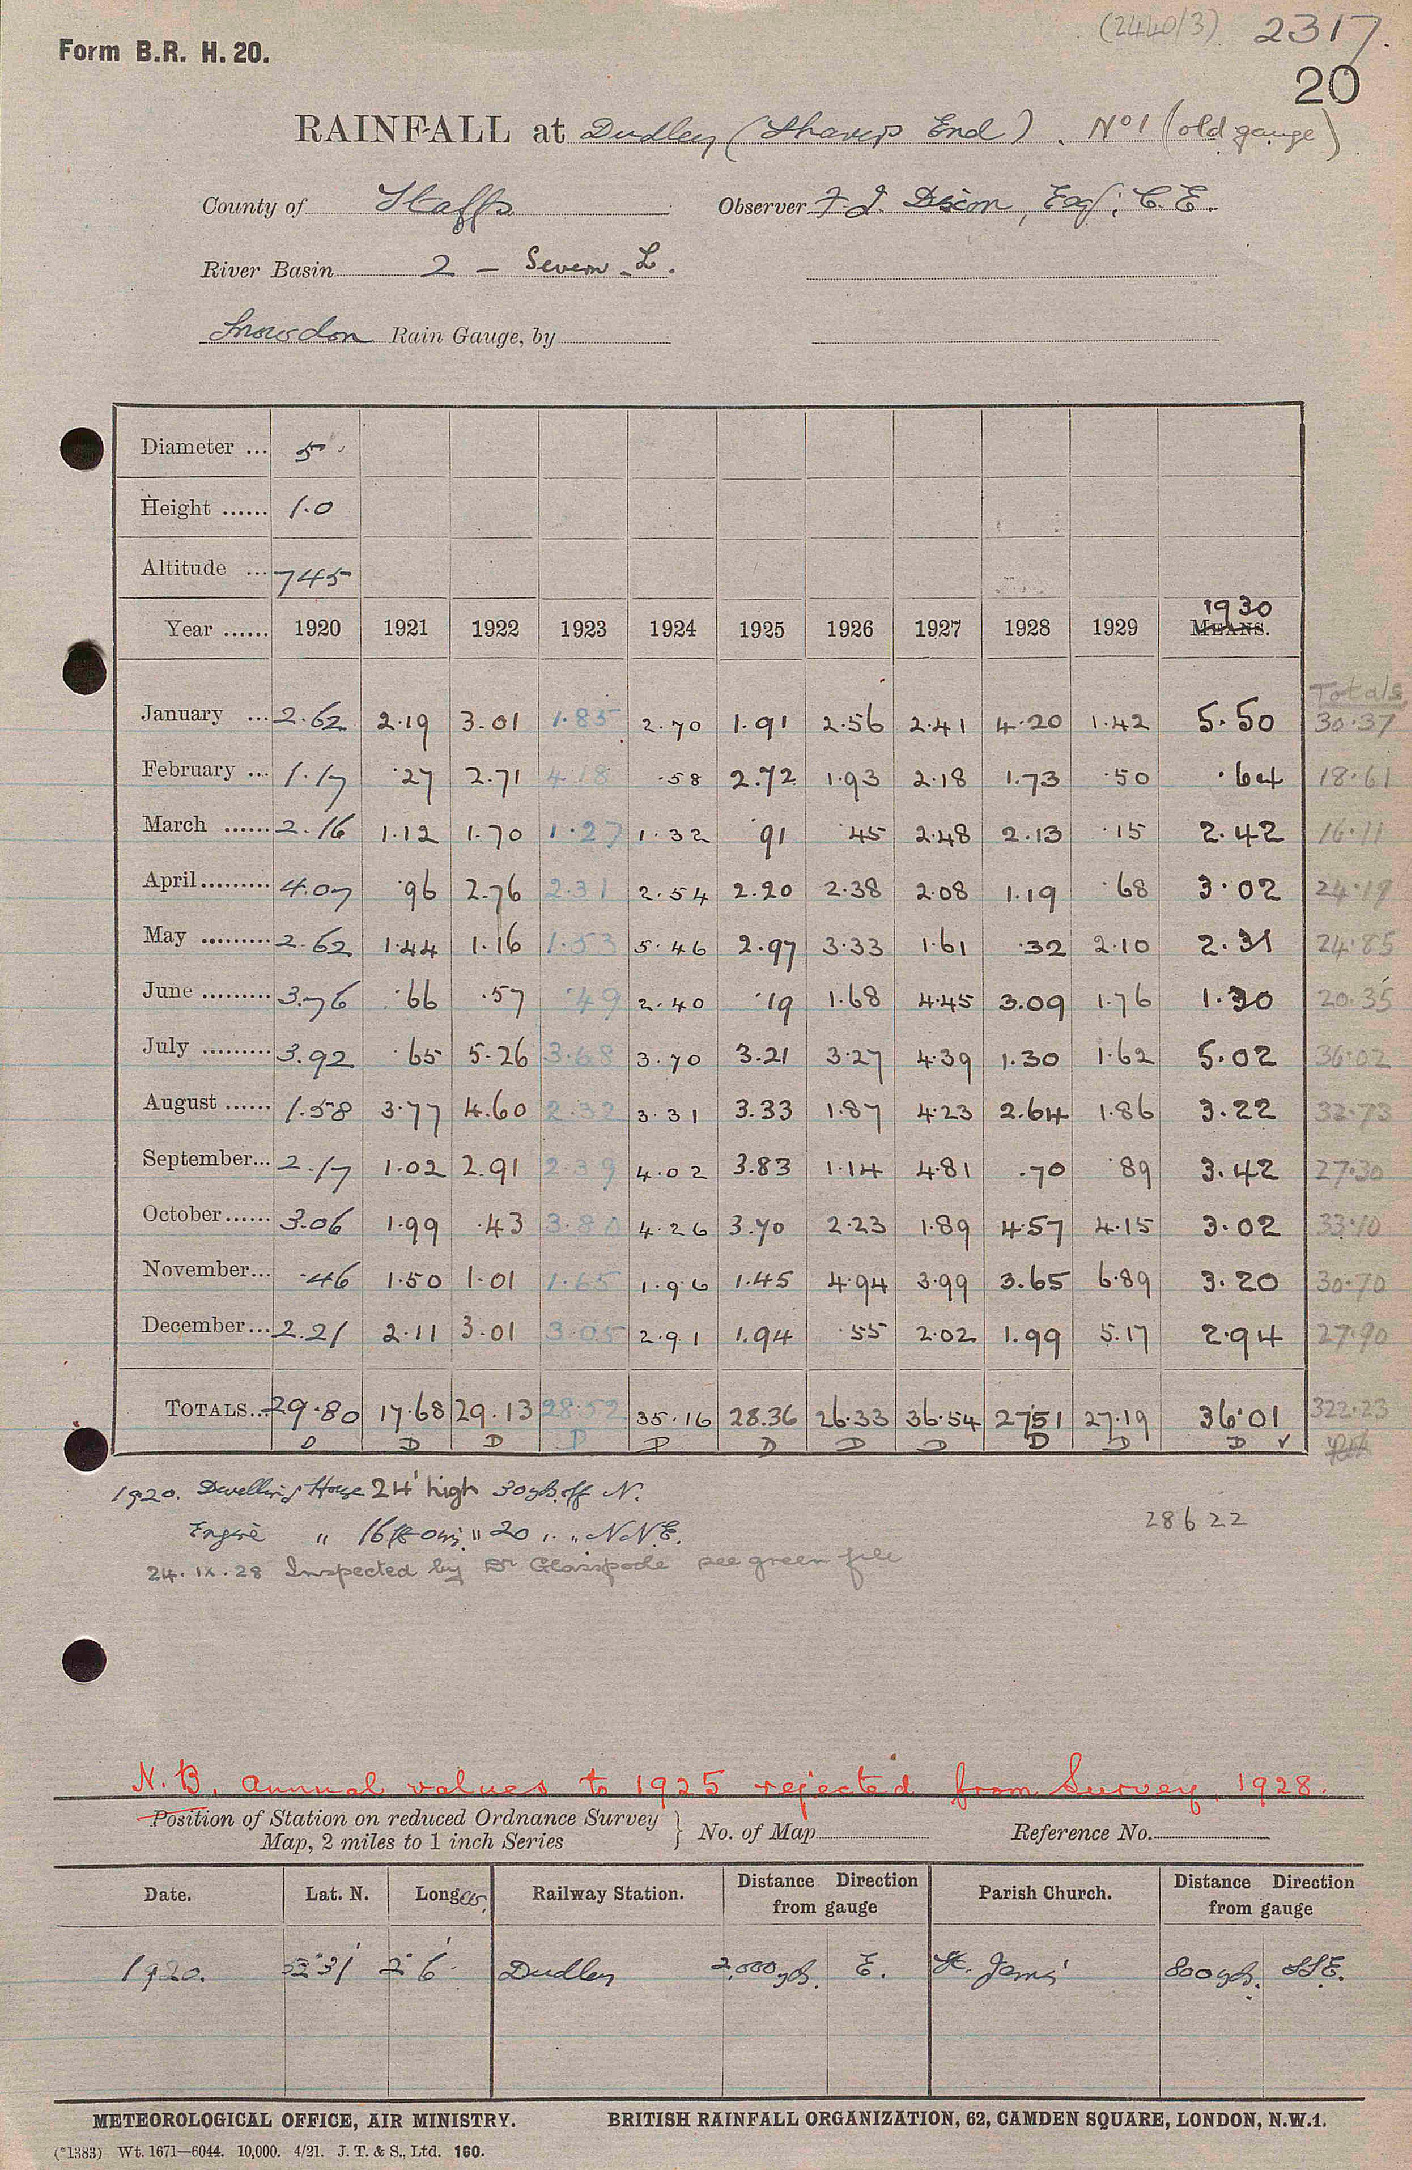 (2440/3) 2317.
Form B.R. H. 20.
20
RAINFALL at Dudley (Shavers End). No 1 (old gauge)
County of Staffs Observer F. J. Dixon, Esq., C.E.
River Basin 2 - Severn - L.
Snowdon Rain Gauge, by
Diameter ... 5
Height ...... 1.0
Altitude ... 745
1930
Year ...... 1920 1921 1922 1923 1924 1925 1926 1927 1928 1929 MEANS.
Totals
January ... 2.62 2.19 3.01 1.85 2.70 1.91 2.56 2.41 4.20 1.42 5.50 30.37
February ... 1.17 .27 2.71 4.18 .58 2.72 1.93 2.18 1.73 .50 .64 18.61
March ...... 2.16 1.12 1.70 1.27 1.32 .91 .45 2.48 2.13 .15 2.42 16.11
April......... 4.07 .96 2.76 2.31 2.54 2.20 2.38 2.08 1.19 .68 3.02 24.19
May ......... 2.62 1.44 1.16 1.53 5.46 2.97 3.33 1.61 .32 2.10 2.31 24.85
June ......... 3.76 .66 .57 .49 2.40 .19 1.68 4.45 3.09 1.76 1.30 20.35
July ......... 3.92 .65 5.26 3.68 3.70 3.21 3.27 4.39 1.30 1.62 5.02 36.02
August ...... 1.58 3.77 4.60 2.32 3.31 3.33 1.87 4.23 2.64 1.86 3.22 32.73
September... 2.17 1.02 2.91 2.39 4.02 3.83 1.14 4.81 .70 .89 3.42 27.30
October...... 3.06 1.99 .43 3.80 4.26 3.70 2.23 1.89 4.57 4.15 3.02 33.10
November... .46 1.50 1.01 1.65 1.96 1.45 4.94 3.99 3.65 6.89 3.20 30.70
December... 2.21 2.11 3.01 3.05 2.91 1.94 .55 2.02 1.99 5.17 2.94 27.90
TOTALS... 29.80 17.68 29.13 28.52 35.16 28.36 26.33 36.54 27.51 27.19 36.01 322.23
D D D D D D D D D D D ✓
1920. Dwelling House 24' high 30 yds. off N.
Engine " 16 ft " 20 " " N.N.E.
28622
24. IX. 28 Inspected by Dr Glasspoole see green file
N.B. Annual values to 1925 rejected from Survey, 1928.
Position of Station on reduced Ordnance Survey
Map, 2 miles to 1 inch Series } No. of Map Reference No.
Date. Lat. N. Long. W. Railway Station. Distance Direction from gauge Parish Church. Distance Direction from gauge
1920. 52° 31' 2° 6' Dudley 2,000 yds. E. St. James' 800 yds. SSE.
METEOROLOGICAL OFFICE, AIR MINISTRY. BRITISH RAINFALL ORGANIZATION, 62, CAMDEN SQUARE, LONDON, N.W.1.
(*1383) Wt. 1671—6044. 10,000. 4/21. J. T. & S., Ltd. 160.